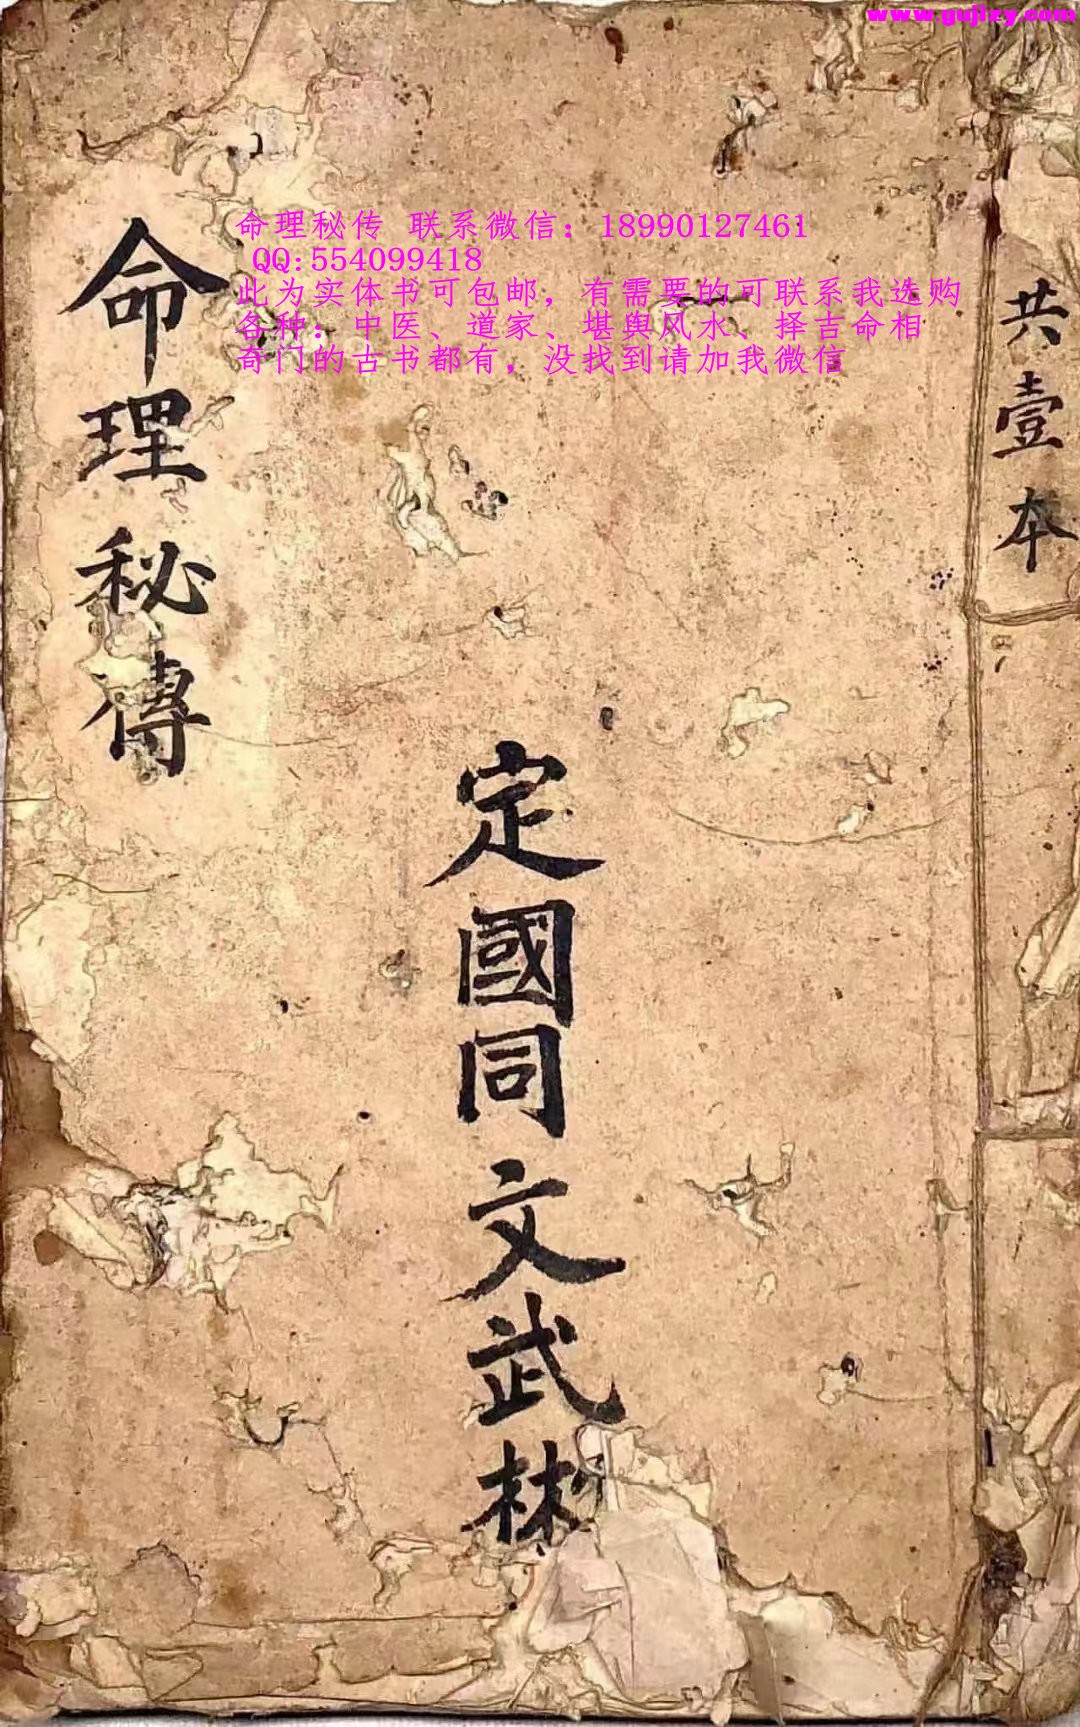 www.gujizy.com
命理秘传 联系微信：18990127461
QQ:554099418
此为实体书可包邮，有需要的可联系我选购
各种：中医、道家、堪舆风水、择吉命相
奇门的古书都有，没找到请加我微信
共壹本
命理秘傳
定國同文武彬